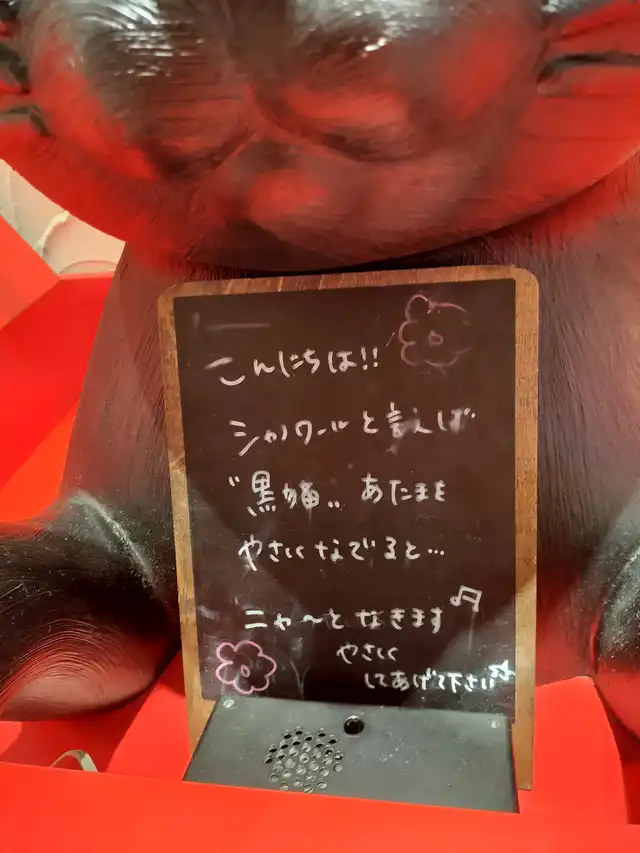 こんにちは!!
シャノワールと言えば
"黒猫" あたまを
やさしくなでると…
ニャ〜となきます♫
やさしく
してあげて下さい☆